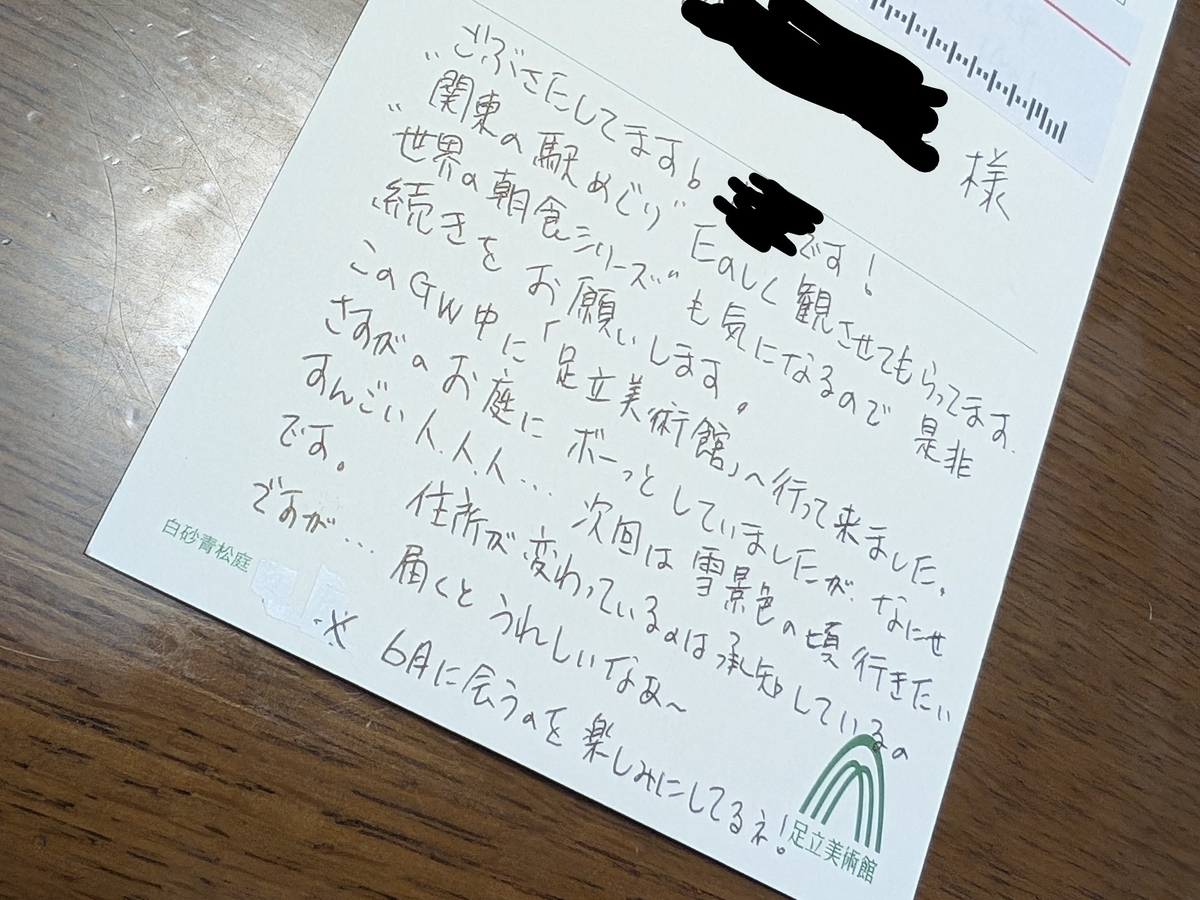 様
ごぶさたしてます。 です！
"関東の駅めぐり" たのしく観させてもらってます。
"世界の朝食シリーズ" も気になるので 是非
続きをお願いします。
このGW中に「足立美術館」へ行って来ました。
さすがのお庭にボーっとしていましたが、なにせ
すんごい人.人.人... 次回は雪景色の頃 行きたい
です。
住所が変わっているのは承知しているの
ですが... 届くとうれしいなぁ〜
※ 6月に会うのを楽しみにしてるネ！
白砂青松庭
足立美術館